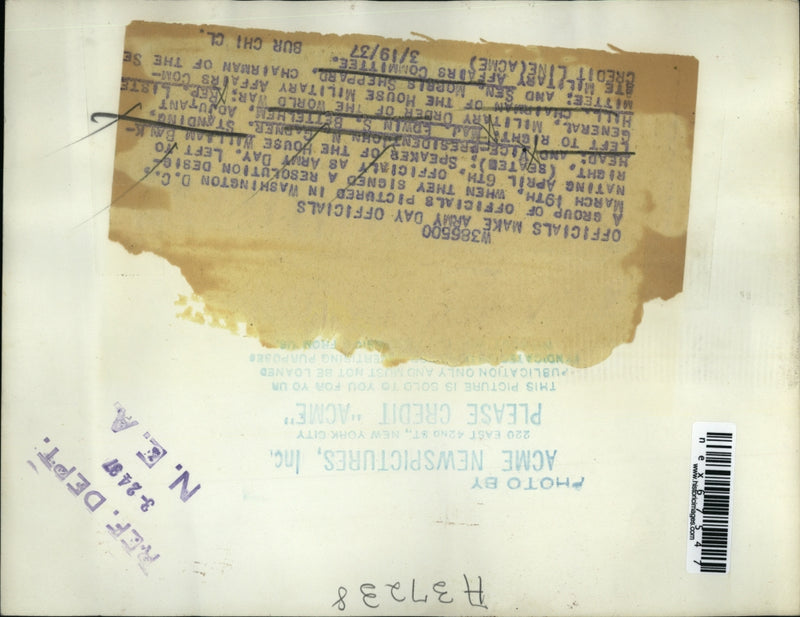 W386500
OFFICIALS MAKE ARMY DAY OFFICIALS
A GROUP OF OFFICIALS PICTURED IN WASHINGTON D.C.
MARCH 19TH. WHEN THEY SIGNED A RESOLUTION DESIG-
NATING APRIL 6TH. OFFICIALY AS ARMY DAY. LEFT TO
RIGHT. (SEATED): SPEAKER OF THE HOUSE WILLIAM BANK-
HEAD: AND VICE-PRESIDENT JOHN N. GARNER. STANDING.
LEFT TO RIGHT: MAJ. EDWIN S. BETTELHEIM. ADJUTANT
GENERAL. MILITARY ORDER OF THE WORLD WAR: REP. LISTE
HILL. CHAIRMAN OF THE HOUSE MILITARY AFFAIRS COM-
MITTEE: AND SEN. MORRIS SHEPPARD. CHAIRMAN OF THE SE
ATE MIL. ARY AFFAIRS COMMITTEE.
CREDIT LINE(ACME) 3/19/37 BUR CHI CL.
PHOTO BY
ACME NEWSPICTURES, Inc.
220 EAST 42ND ST., NEW YORK CITY
PLEASE CREDIT "ACME"
THIS PICTURE IS SOLD TO YOU FOR YOUR
PUBLICATION ONLY AND MUST NOT BE LOANED
PURPOSES
FROM US
REF. DEPT.
3-24-37
N. E. A.
nex67547
www.historicimages.com
A37238